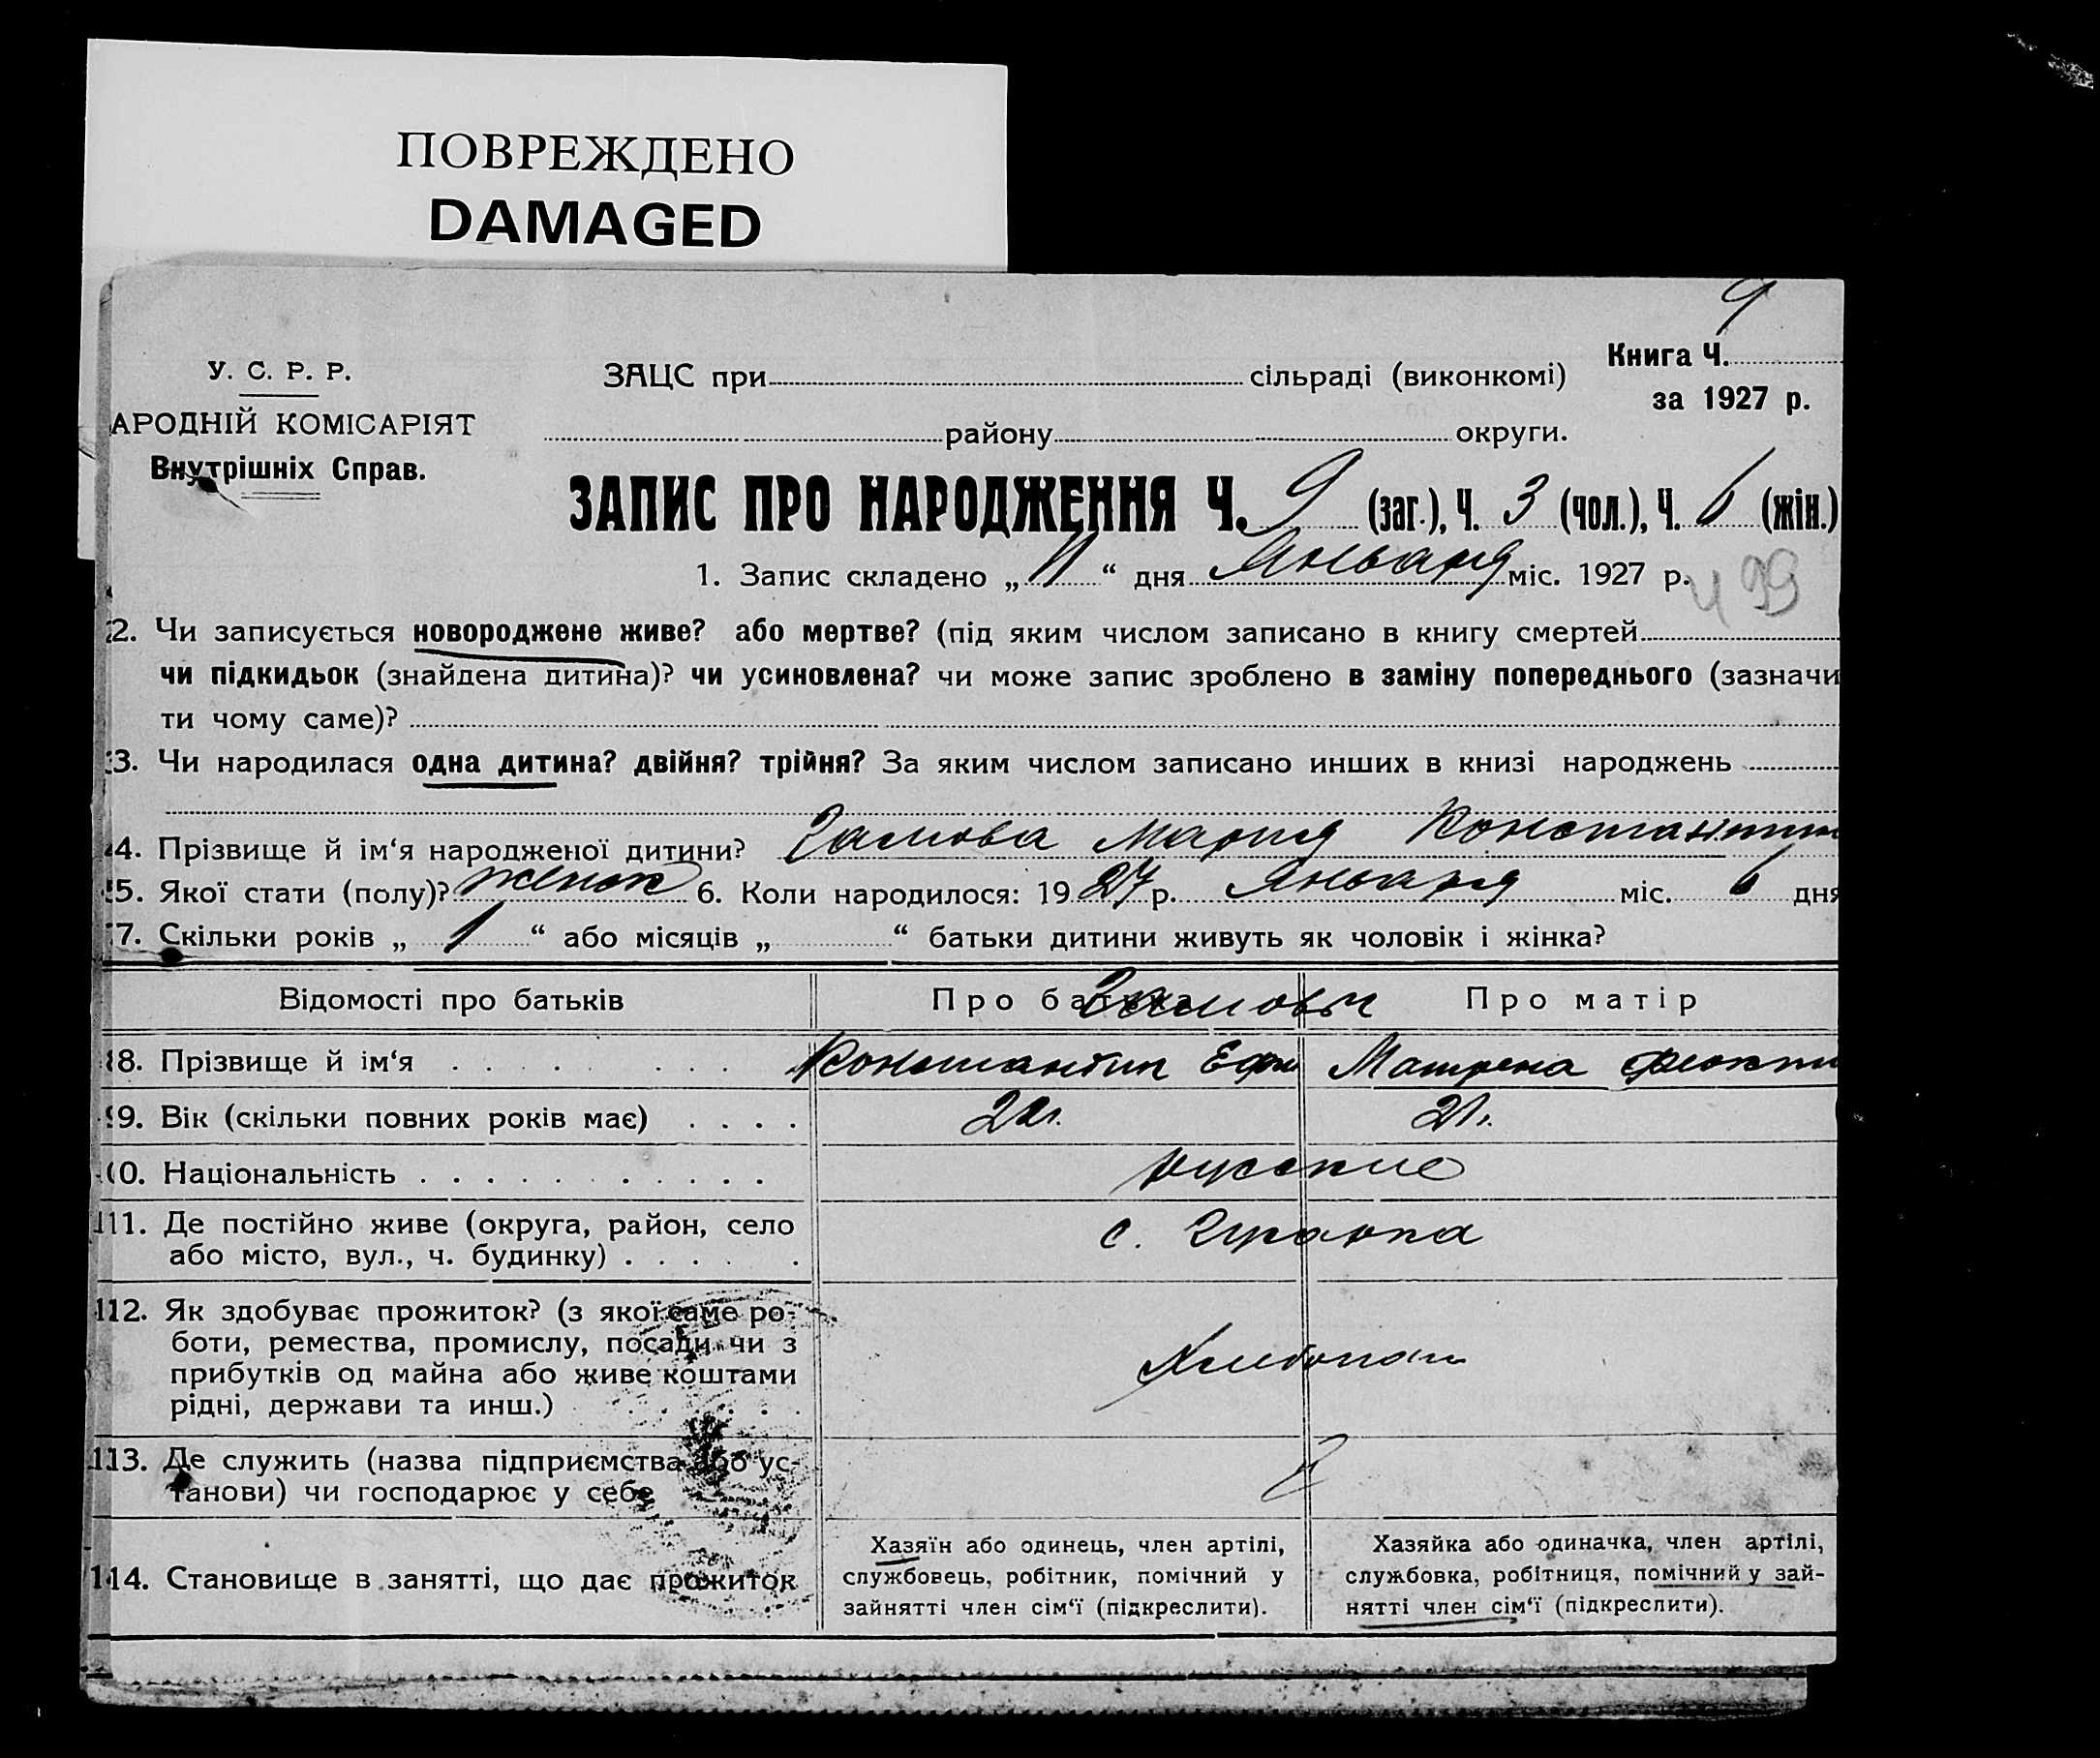 ПОВРЕЖДЕНО
DAMAGED
9
У. С. Р. Р.
АРОДНІЙ КОМІСАРІЯТ
Внутрішніх Справ.
ЗАЦС при сільраді (виконкомі)
району округи.
Книга Ч.
за 1927 р.
ЗАПИС ПРО НАРОДЖЕННЯ Ч. 9 (заг.), Ч. 3 (чол.), Ч. 6 (жін.)
1. Запис складено „ 11 “ дня Января міс. 1927 р.
2. Чи записується новороджене живе? або мертве? (під яким числом записано в книгу смертей
чи підкидьок (знайдена дитина)? чи усиновлена? чи може запис зроблено в заміну попереднього (зазначи
ти чому саме)?
3. Чи народилася одна дитина? двійня? трійня? За яким числом записано инших в книзі народжень
4. Прізвище й ім‘я народженої дитини? Мария Константин
5. Якої стати (полу)? женск 6. Коли народилося: 1927 р. Января міс. 6 дня
7. Скільки років „ 1 “ або місяців „ “ батьки дитини живуть як чоловік і жінка?
Відомості про батьків Про батька Про матір
8. Прізвище й ім‘я Константин Ефи Матрена
9. Вік (скільки повних років має) 21г.
10. Національність русские
11. Де постійно живе (округа, район, село
або місто, вул., ч. будинку) с.
12. Як здобуває прожиток? (з якої саме ро-
боти, ремества, промислу, посади чи з
прибутків од майна або живе коштами
рідні, держави та инш.) Хлебопаш
13. Де служить (назва підприємства або ус-
танови) чи господарює у себе
14. Становище в занятті, що дає прожиток
Хазяїн або одинець, член артілі,
службовець, робітник, помічний у
зайнятті член сім‘ї (підкреслити).
Хазяйка або одиначка, член артілі,
службовка, робітниця, помічний у зай-
нятті член сім‘ї (підкреслити).